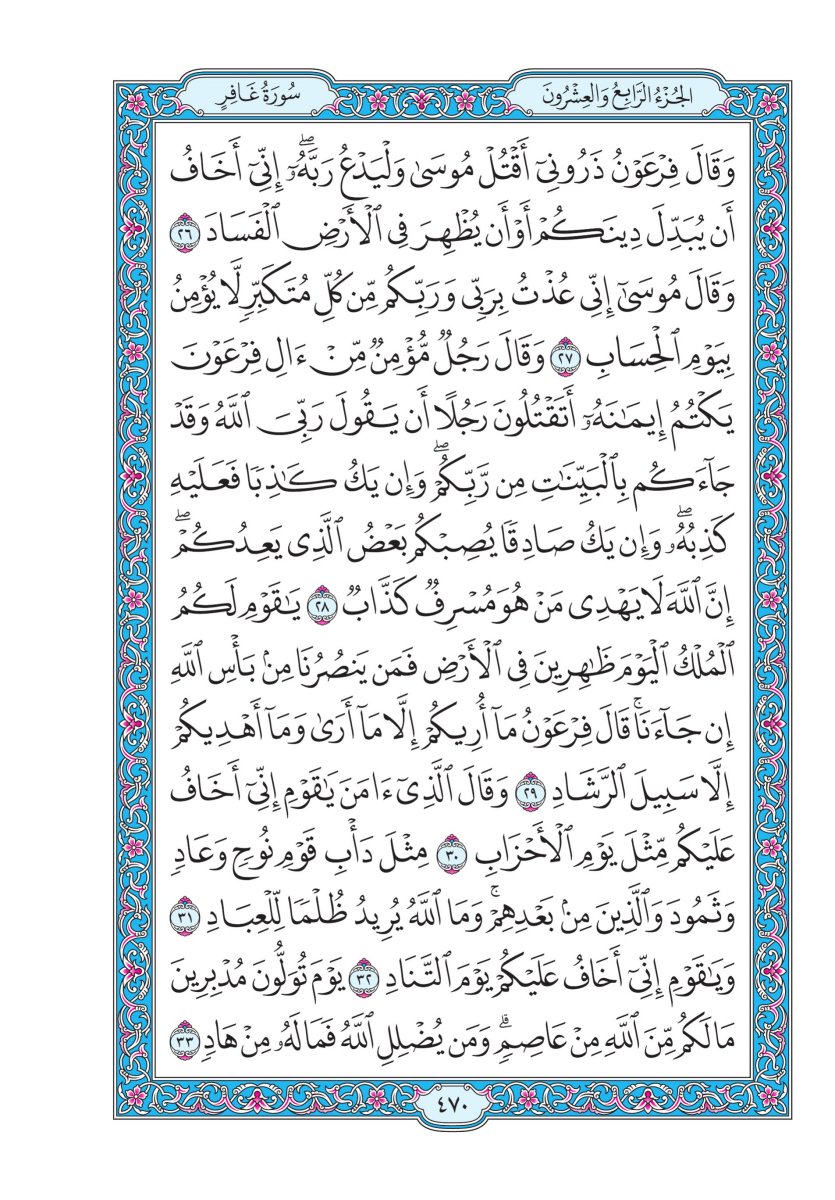 الجُزْءُ الرَّابِعُ وَالعِشْرُونَ
سُورَةُ غَافِرٍ
وَقَالَ فِرْعَوْنُ ذَرُونِىٓ أَقْتُلْ مُوسَىٰ وَلْيَدْعُ رَبَّهُۥٓۖ إِنِّىٓ أَخَافُ
أَن يُبَدِّلَ دِينَكُمْ أَوْ أَن يُظْهِرَ فِى ٱلْأَرْضِ ٱلْفَسَادَ ٢٦
وَقَالَ مُوسَىٰٓ إِنِّى عُذْتُ بِرَبِّى وَرَبِّكُم مِّن كُلِّ مُتَكَبِّرٍ لَّا يُؤْمِنُ
بِيَوْمِ ٱلْحِسَابِ ٢٧ وَقَالَ رَجُلٌ مُّؤْمِنٌ مِّنْ ءَالِ فِرْعَوْنَ
يَكْتُمُ إِيمَٰنَهُۥٓ أَتَقْتُلُونَ رَجُلًا أَن يَقُولَ رَبِّىَ ٱللَّهُ وَقَدْ
جَآءَكُم بِٱلْبَيِّنَٰتِ مِن رَّبِّكُمْۖ وَإِن يَكُ كَٰذِبًا فَعَلَيْهِ
كَذِبُهُۥۖ وَإِن يَكُ صَادِقًا يُصِبْكُم بَعْضُ ٱلَّذِى يَعِدُكُمْۖ
إِنَّ ٱللَّهَ لَا يَهْدِى مَنْ هُوَ مُسْرِفٌ كَذَّابٌ ٢٨ يَٰقَوْمِ لَكُمُ
ٱلْمُلْكُ ٱلْيَوْمَ ظَٰهِرِينَ فِى ٱلْأَرْضِ فَمَن يَنصُرُنَا مِنۢ بَأْسِ ٱللَّهِ
إِن جَآءَنَاۚ قَالَ فِرْعَوْنُ مَآ أُرِيكُمْ إِلَّا مَآ أَرَىٰ وَمَآ أَهْدِيكُمْ
إِلَّا سَبِيلَ ٱلرَّشَادِ ٢٩ وَقَالَ ٱلَّذِىٓ ءَامَنَ يَٰقَوْمِ إِنِّىٓ أَخَافُ
عَلَيْكُم مِّثْلَ يَوْمِ ٱلْأَحْزَابِ ٣٠ مِثْلَ دَأْبِ قَوْمِ نُوحٍ وَعَادٍ
وَثَمُودَ وَٱلَّذِينَ مِنۢ بَعْدِهِمْۚ وَمَا ٱللَّهُ يُرِيدُ ظُلْمًا لِّلْعِبَادِ ٣١
وَيَٰقَوْمِ إِنِّىٓ أَخَافُ عَلَيْكُمْ يَوْمَ ٱلتَّنَادِ ٣٢ يَوْمَ تُوَلُّونَ مُدْبِرِينَ
مَا لَكُم مِّنَ ٱللَّهِ مِنْ عَاصِمٍۗ وَمَن يُضْلِلِ ٱللَّهُ فَمَا لَهُۥ مِنْ هَادٍ ٣٣
٤٧٠